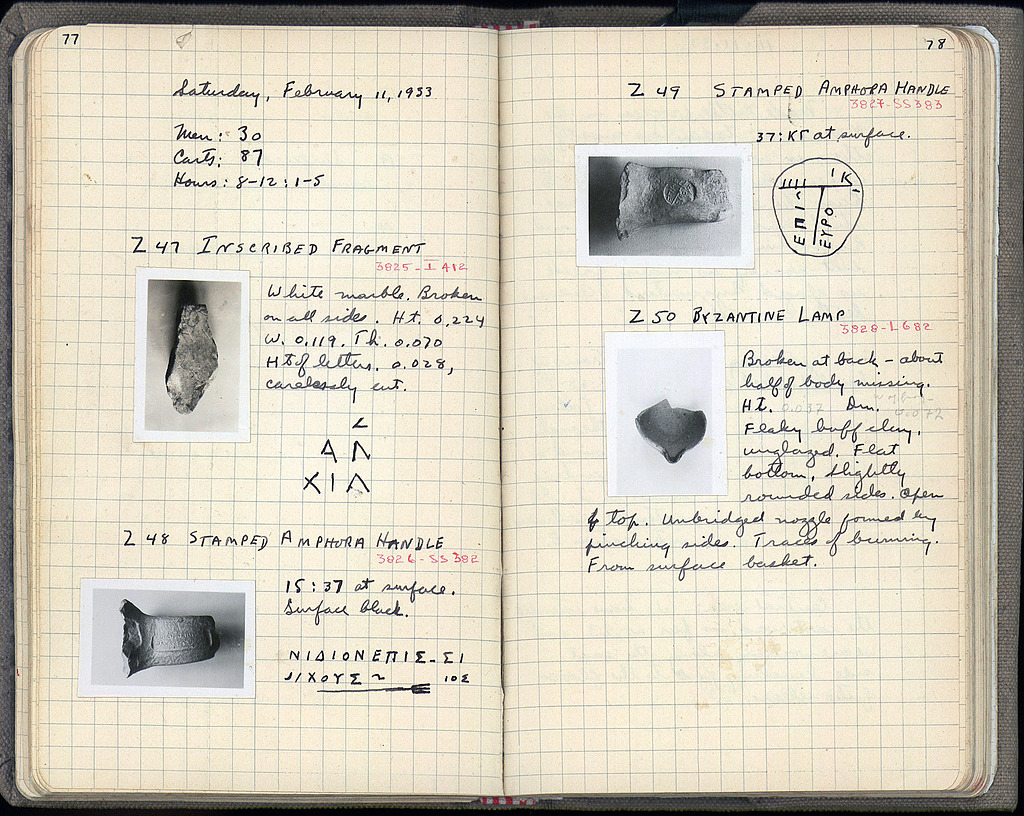 77
Saturday, February 11, 1933
Men: 30
Carts: 87
Hours: 8-12 : 1-5
Z 47 INSCRIBED FRAGMENT
3825 - I 412
White marble. Broken
on all sides. Ht. 0.224
W. 0.119. Th. 0.070
Ht of letters. 0.028,
carelessly cut.
Α Λ
ΧΙΛ
Z 48 STAMPED AMPHORA HANDLE
3826 - SS 382
15:37 at surface.
Surface black.
ΝΙΔΙΟΝΕΠΙΣ-ΣΙ
ΙΧΟΥΣ ΙΟΣ
78
Z 49 STAMPED AMPHORA HANDLE
3827-SS383
37:ΚΓ at surface.
Ι Κ
ΕΠΙ
ΕΥΡΟ
Z 50 BYZANTINE LAMP
3828-L682
Broken at back - about
half of body missing.
Ht. 0.037 Dm. 0.072
Flaky buff clay,
unglazed. Flat
bottom, slightly
rounded sides. Open
top. Unbridged nozzle formed by
pinching sides. Traces of burning.
From surface basket.